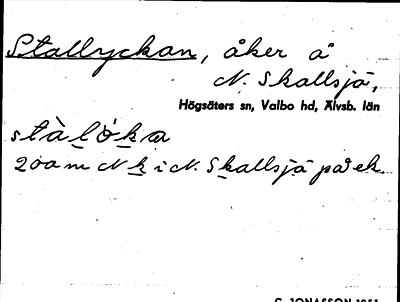 Stallyckan, åker å
N. Skallsjö,
Högsäters sn, Valbo hd, Älvsb. län
stàlóka
200 m N k i N. Skallsjö på ek.
C. JONASSON 1951